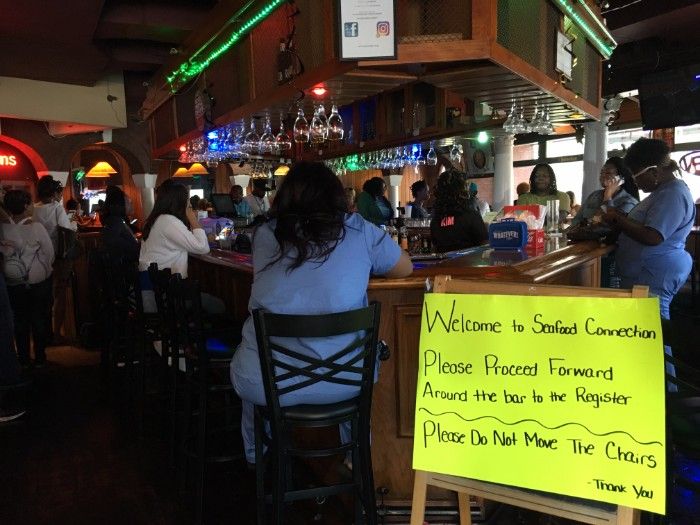 Welcome to Seafood Connection
Please Proceed Forward
Around the bar to the Register
Please Do Not Move The Chairs
- Thank You
KIM
WHATEVER!